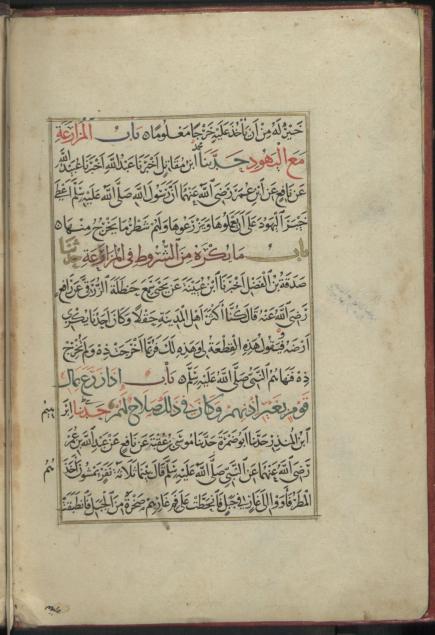 خير له من ان ياخذ عليه خرجا معلوما باب المزارعة
مع اليهود حدثنا محمد ابن مقاتل اخبرنا عبد الله اخبرنا عبيد الله
عن نافع عن ابن عمر رضي الله عنهما ان رسول الله صلى الله عليه وسلم اعطى
خيبر اليهود على ان يعملوها ويزرعوها ولهم شطر ما يخرج منها
باب ما يكره من الشروط في المزارعة حدثنا
صدقة بن الفضل اخبرنا ابن عيينة عن يحيى سمع حنظلة الزرقي عن رافع
رضي الله عنه قال كنا اكثر اهل المدينة حقلا وكان احدنا يكري
ارضه فيقول هذه القطعة لي وهذه لك فربما اخرجت ذه ولم تخرج
ذه فنهاهم النبي صلى الله عليه وسلم باب اذا زرع بمال
قوم بغير اذنهم وكان في ذلك صلاح لهم حدثنا ابر هيم
ابن المنذر حدثنا ابو ضمرة حدثنا موسى بن عقبة عن نافع عن عبد الله بن عمر
رضي الله عنهما عن النبي صلى الله عليه وسلم قال بينما ثلاثة نفر يمشون اخذ هم
المطر فاووا الى غار في جبل فانحطت على فم غارهم صخرة من الجبل فانطبقت